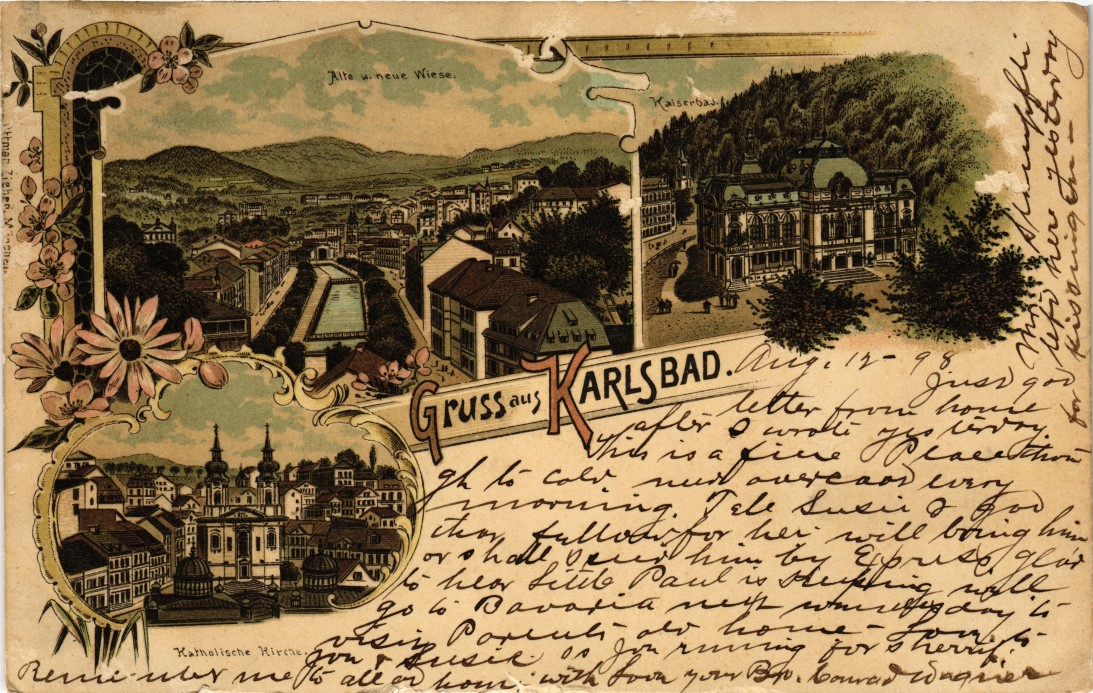 Alte u. neue Wiese.
Kaiserbad.
Gruss aus KARLSBAD.
Katholische Kirche.
Aug. 12 - 98
Just god
letter from home
after I wrote yesterday
This is a fine Place thou
gh to cold need overcoad every
morning. Tele Susie I god
thad fellow for her will bring him
or shall I send him by Express glad
to hear Little Paul is sleeping well
go to Bavaria next wensesday to
visid Parents old home - Love to
you & Susie is Jon running for sherrif.
Remember me to all ad home with Love your Br. Conrad Wagner
left here yesterday
for Kissingen -